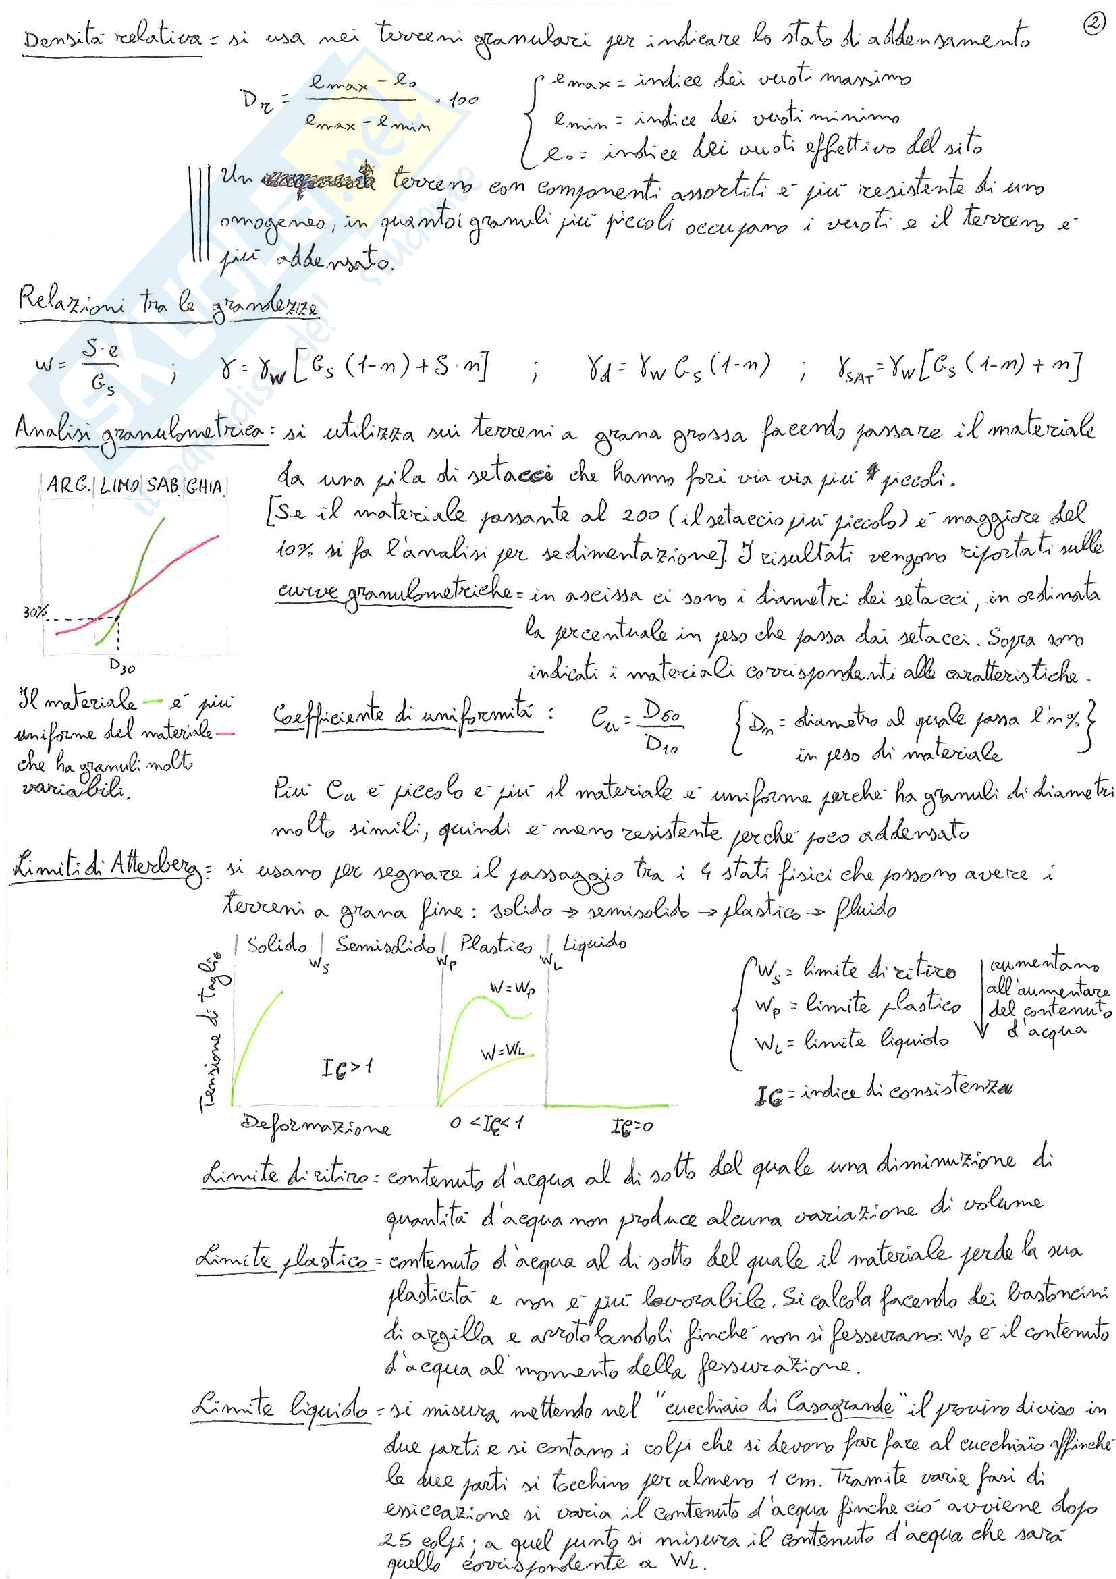 2
Densità relativa = si usa nei terreni granulari per indicare lo stato di addensamento
Dr = (emax - e0) / (emax - emin) · 100
emax = indice dei vuoti massimo
emin = indice dei vuoti minimo
e0 = indice dei vuoti effettivo del sito
Un terreno con componenti assortiti è più resistente di uno
omogeneo, in quanto i granuli più piccoli occupano i vuoti e il terreno è
più addensato.
Relazioni tra le grandezze
w = S·e / Gs ; γ = γw [Gs (1-n) + S·n] ; γd = γw Gs (1-n) ; γSAT = γw [Gs (1-n) + n]
Analisi granulometrica: si utilizza sui terreni a grana grossa facendo passare il materiale
da una pila di setacci che hanno fori via via più piccoli.
[Se il materiale passante al 200 (il setaccio più piccolo) è maggiore del
10% si fa l'analisi per sedimentazione]. I risultati vengono riportati sulle
curve granulometriche = in ascissa ci sono i diametri dei setacci, in ordinata
la percentuale in peso che passa dai setacci. Sopra sono
indicati i materiali corrispondenti alle caratteristiche.
ARG. | LIMO | SAB. | GHIA.
30%
D30
Il materiale — è più
uniforme del materiale —
che ha granuli molt
variabili.
Coefficiente di uniformità: Cu = D60 / D10 { Dn = diametro al quale passa l'n%
in peso di materiale }
Più Cu è piccolo e più il materiale è uniforme perché ha granuli di diametri
molto simili, quindi è meno resistente perché poco addensato
Limiti di Atterberg = si usano per segnare il passaggio tra i 4 stati fisici che possono avere i
terreni a grana fine: solido → semisolido → plastico → fluido
| Solido | Semisolido | Plastico | Liquido
wS wP wL
Tensione di taglio
W = Wp
W = WL
IC > 1
Deformazione
0 < IC < 1
IC = 0
WS = limite di ritiro
WP = limite plastico
WL = limite liquido
aumentano
all'aumentare
del contenuto
d'acqua
IC = indice di consistenza
Limite di ritiro = contenuto d'acqua al di sotto del quale una diminuzione di
quantità d'acqua non produce alcuna variazione di volume
Limite plastico = contenuto d'acqua al di sotto del quale il materiale perde la sua
plasticità e non è più lavorabile. Si calcola facendo dei bastoncini
di argilla e arrotolandoli finché non si fessurano: Wp è il contenuto
d'acqua al momento della fessurazione.
Limite liquido = si misura mettendo nel "cucchiaio di Casagrande" il provino diviso in
due parti e si contano i colpi che si devono far fare al cucchiaio affinché
le due parti si tocchino per almeno 1 cm. Tramite varie fasi di
essiccazione si varia il contenuto d'acqua finché ciò avviene dopo
25 colpi; a quel punto si misura il contenuto d'acqua che sarà
quello corrispondente a WL.